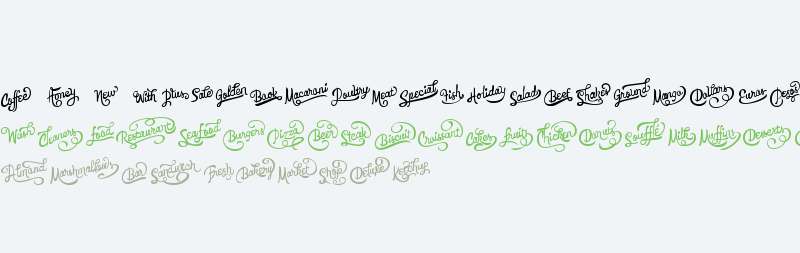 Coffee Honey New With Plus Sale Golden Book Macaroni Poultry Meat Special Fish Holiday Salads Beef Shakes Ground Mango Dollars Euros Pesos
Wash Cleaners Food Restaurant Seafood Burgers Pizza Beer Steak Biscuit Croissant Cakes Fruits Chicken Donuts Soufflé Milk Muffins Desserts
Almond Marshmallows Bar Sandwich Fresh Bakery Market Shop Deluxe Ketchup